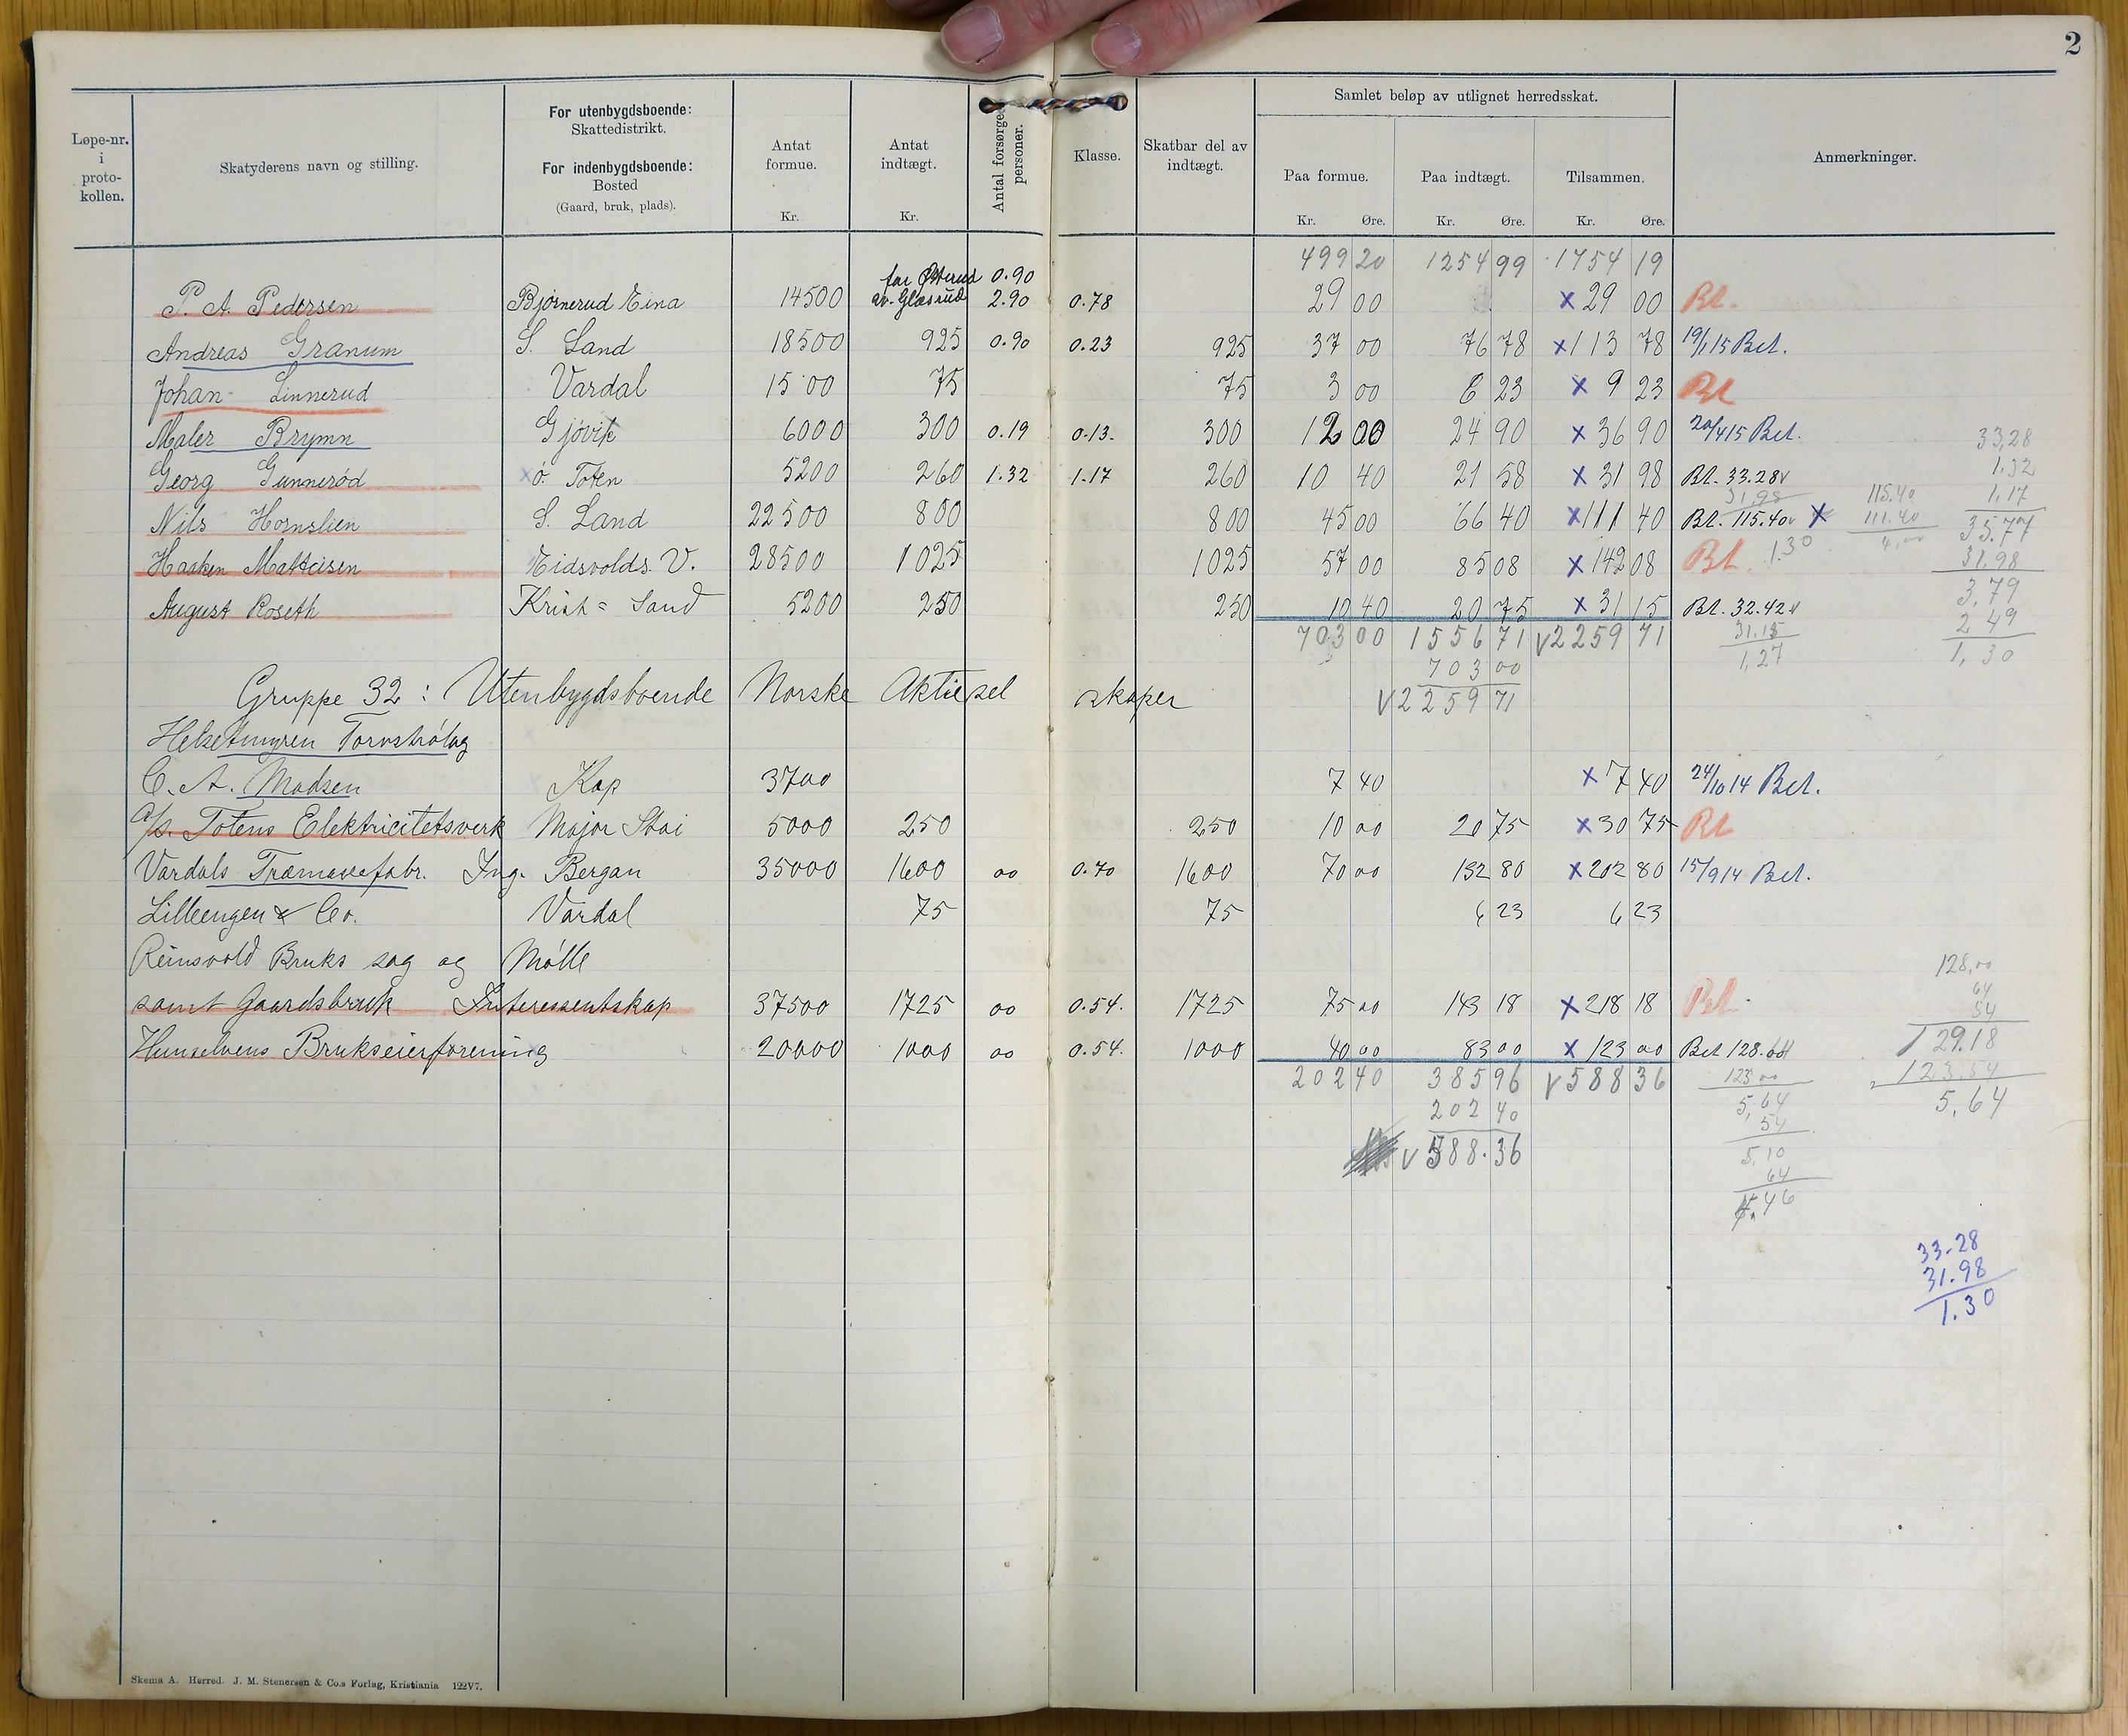 2
Løpe-nr. i proto-kollen.
Skatyderens navn og stilling.
For utenbygdsboende: Skattedistrikt.
For indenbygdsboende: Bosted (Gaard, bruk, plads).
Antat formue. Kr.
Antat indtægt. Kr.
Antal forsørgede personer.
Klasse.
Skatbar del av indtægt.
Samlet beløp av utlignet herredsskat.
Paa formue. Kr. Øre.
Paa indtægt. Kr. Øre.
Tilsammen. Kr. Øre.
Anmerkninger.
499 20 1254 99 1754 19
for Østerud 0.90
P. A. Pedersen Bjørnerud Eina 14500 av. Glæsrud 2.90 0.78 29 00 x 29 00 Bt.
Andreas Granum S. Land 18500 925 0.90 0.23 925 37 00 76 78 x 113 78 19/1 15 Bet.
Johan Linnerud Vardal 1500 75 75 3 00 6 23 x 9 23 Bt
Maler Brymn Gjövik 6000 300 0.19 0.13. 300 12 00 24 90 x 36 90 20/4 15 Bet.
Georg Gunnerød x ö. Toten 5200 260 1.32 1.17 260 10 40 21 58 x 31 98 Bt. 33.28 v
31.98
Nils Hornslien S. Land 22500 800 800 45 00 66 40 x 111 40 Bt. 115.40 v x
Haaken Mattisen Eidsvolds. V. 28500 1025 1025 57 00 85 08 x 142 08 Bt. 1.30
August Roseth Krist = Sand 5200 250 250 10 40 20 75 x 31 15 Bt. 32.42 v
703 00 1556 71 v 2259 71
703 00
v 2259 71
31.15
1,27
115.40
111.40
4,00
33,28
1,32
1,17
35.77
31.98
3,79
2 49
1,30
Gruppe 32: Utenbygdsboende Norske Aktiesel skaper
Helsetmyren Torvströlag
C. A. Madsen Kap 3700 7 40 x 7 40 24/10 14 Bet.
A/s. Totens Elektricitetsverk Major Stai 5000 250 250 10 00 20 75 x 30 75 Bt
Vardals Træmassefabr. Ing. Bergan 35000 1600 00 0.70 1600 70 00 132 80 x 202 80 15/9 14 Bet.
Lilleengen & Co. Vardal 75 75 6 23 6 23
Reinsvold Bruks sag og Mölle
samt Gaardsbruk Interessentskap 37500 1725 00 0.54. 1725 75 00 143 18 x 218 18 Bet.
Hunselvens Brukseierforening 20000 1000 00 0.54. 1000 40 00 83 00 x 123 00 Bet 128.64
202 40 385 96 v 588 36
202 40
v 588.36
123 00
5,64
54
5,10
64
4.46
128,00
64
54
129.18
123.54
5.64
33-28
31.98
1.30
Skema A. Herred. J. M. Stenersen & Co.s Forlag, Kristiania 122V7.